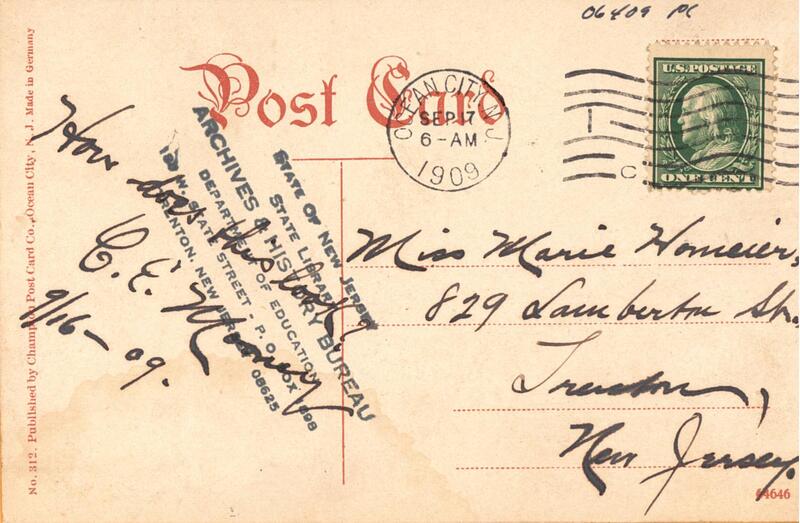 06409 PC
Post Card
OCEAN CITY, N.J.
SEP 17
6-AM
1909
C
U.S. POSTAGE
ONE CENT
No. 312. Published by Champion Post Card Co., Ocean City, N. J. Made in Germany
How does this look?
C. E. Mooney
9/16-09.
STATE OF NEW JERSEY
STATE LIBRARY
ARCHIVES & HISTORY BUREAU
DEPARTMENT OF EDUCATION
W. STATE STREET - P. O. BOX 1898
TRENTON, NEW JERSEY 08625
Miss Marie Homeier,
829 Lamberton Str.
Trenton,
New Jersey.
64646